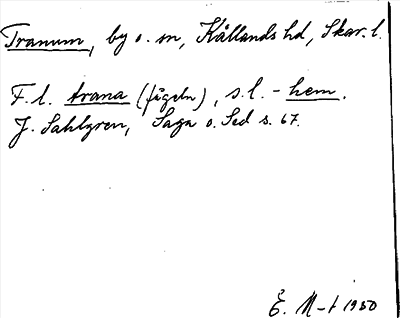 Tranum, by o. sn, Kållands hd, Skar. l.
F. l. trana (fågeln), s. l. - hem.
J. Sahlgren, Saga o. Sed s. 67.
E. M-t 1950